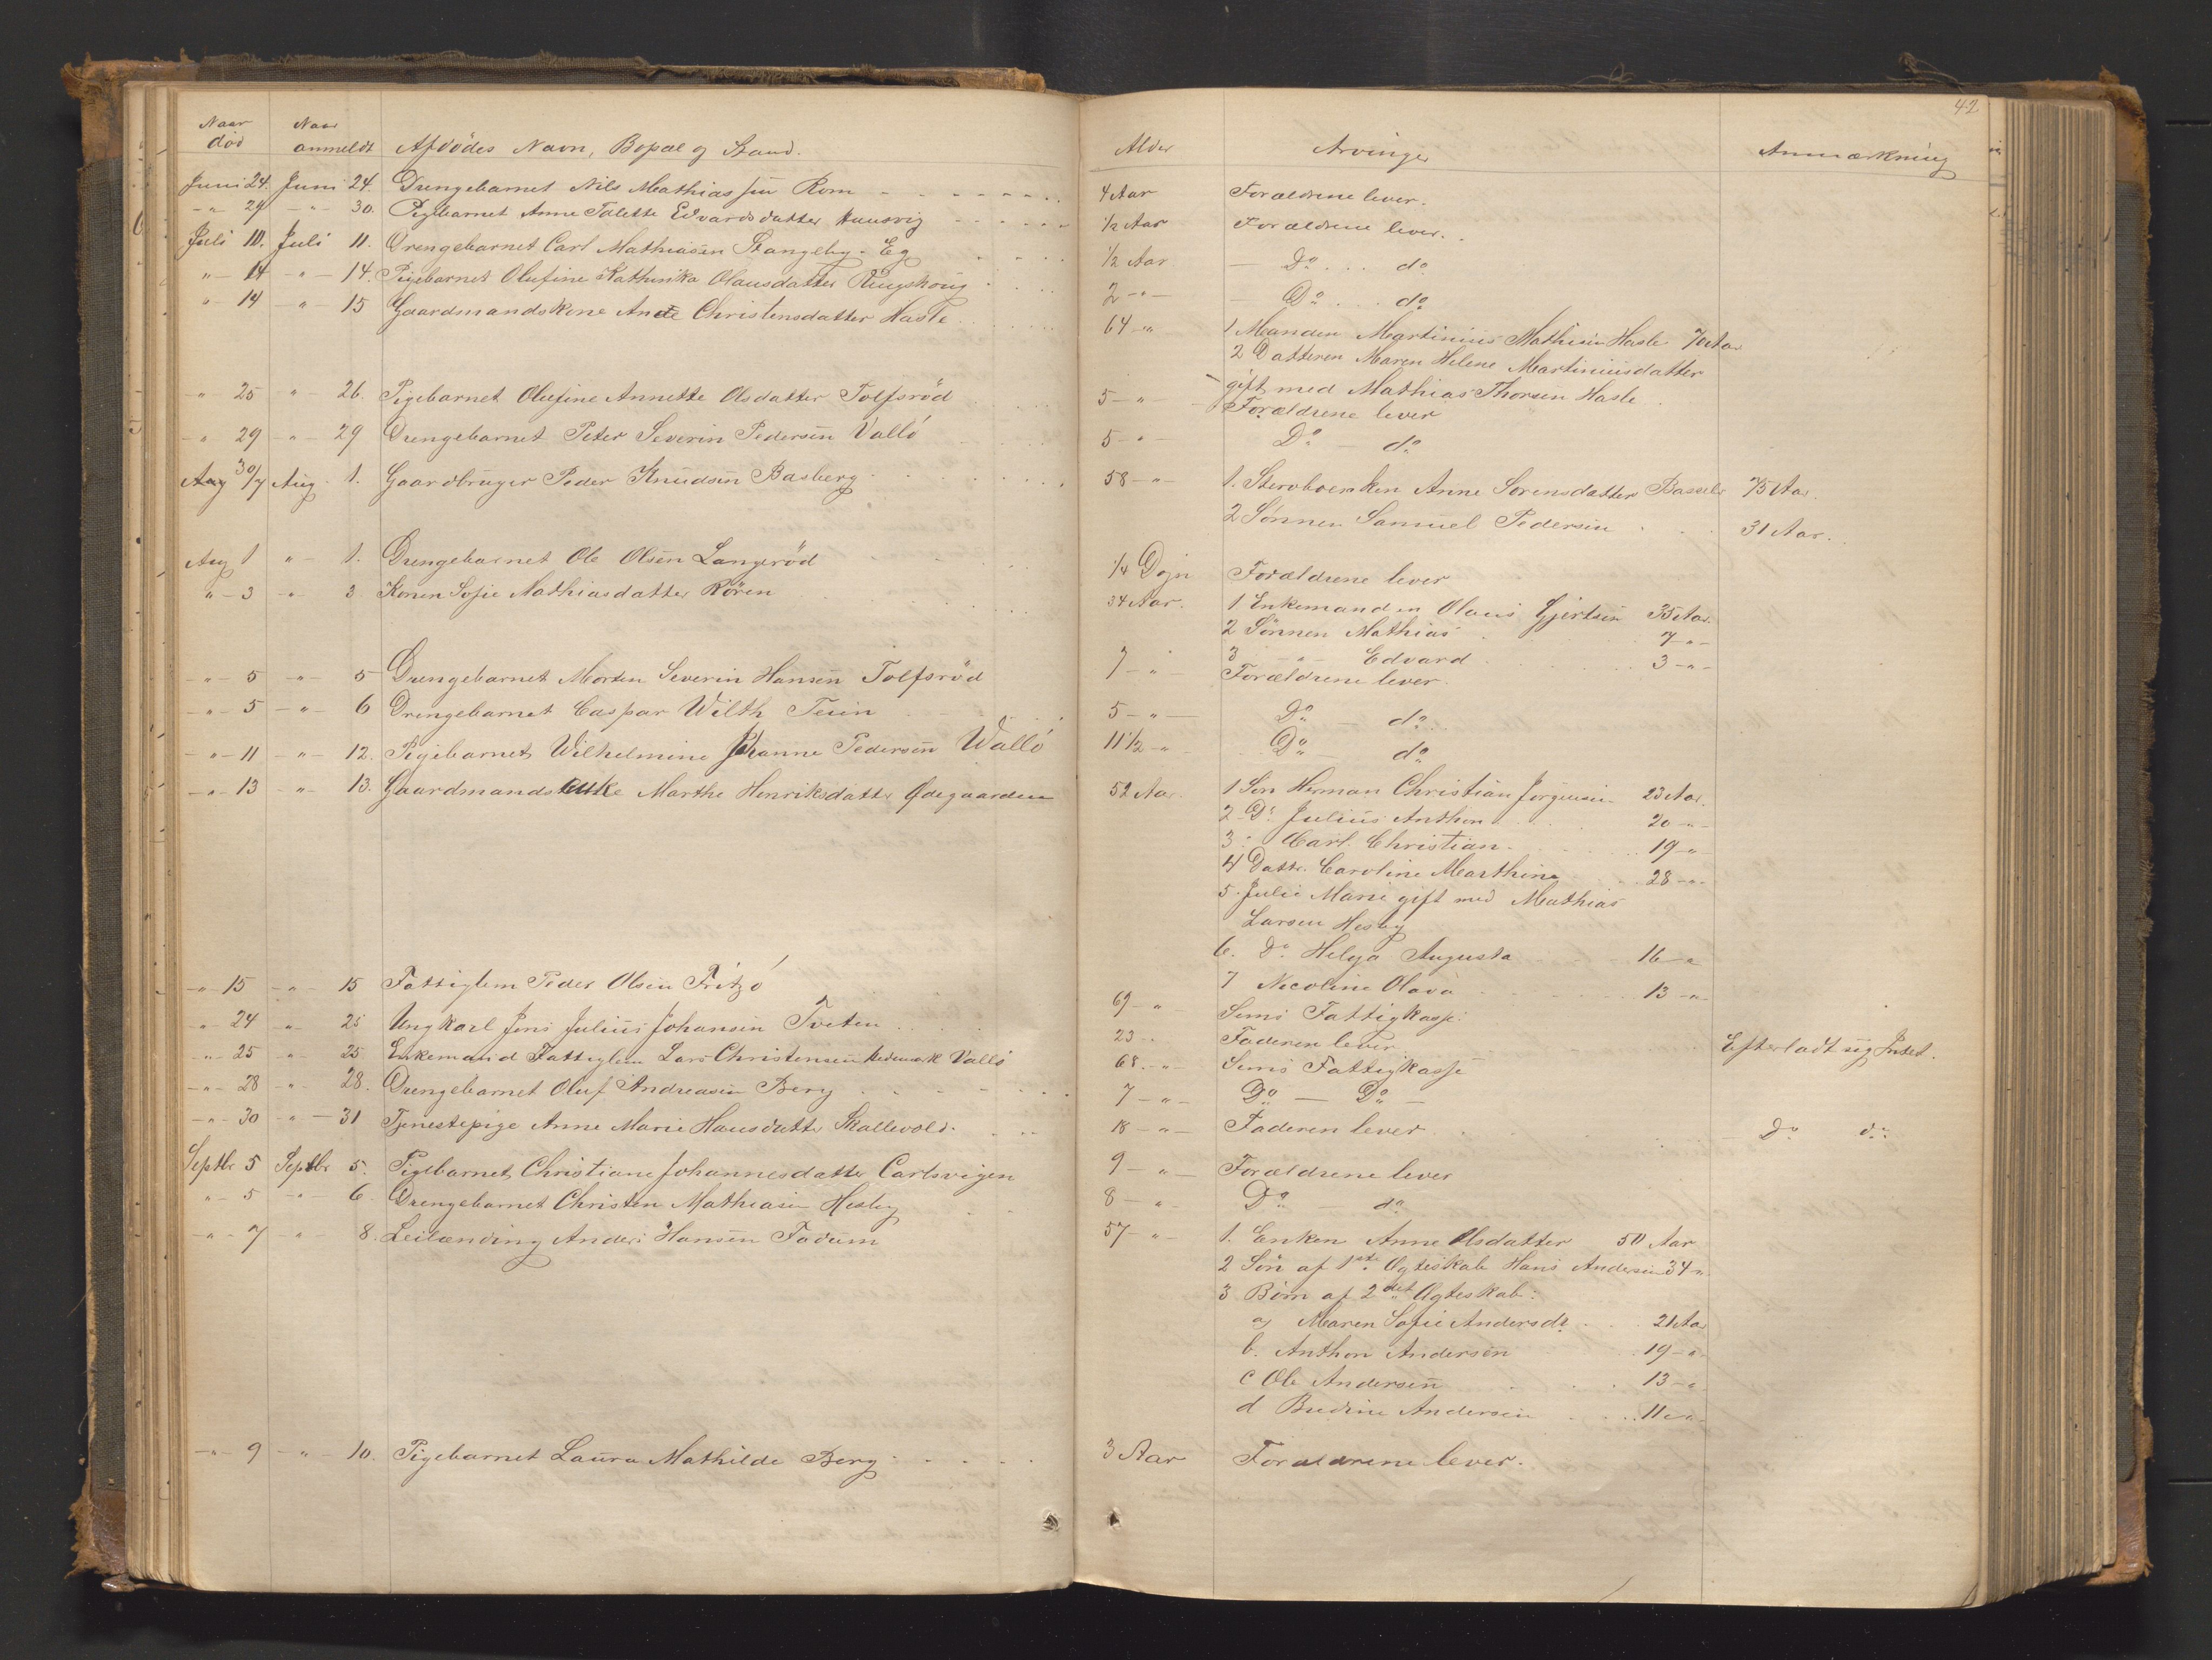 Naar død Naar anmeldt Afdödes Navn, Bopæl og Stand.
Juni 24. Juni 24. Drengebarnet Nils Mathiassen Rom
-"- 29 -"- 30. Pigebarnet Anne Talette Edvardsdatter Husvig
Juli 10. Juli 11. Drengebarnet Carl Mathiasen Stangeby-Eg
"- 14 -"- 14. Pigebarnet Olufine Kathinka Olausdatter Ringshoug
"- 14 -"- 15 Gaardmandskone Ane Christensdatter Hasle
"- 25 "- 26. Pigebarnet Olufine Annette Olsdatter Tolfsröd
"- 29 -"- 29 Drengebarnet Peter Severin Pedersen Vallö
Aug 30/7 Aug. 1. Gaardbruger Peder Knudsen Basberg
Aug 1 "- 1. Drengebarnet Ole Olsen Langeröd
"- 3 -"- 3 Konen Sofie Mathiasdatter Rören
-"- 5 -"- 5 Drengebarnet Morten Severin Hansen Tolfsröd
-"- 5 -"- 6 Drengebarnet Caspar Wilth Teien
-"- 11 -"- 12. Pigebarnet Wilhelmine Johanne Pedersen Wallö
-"- 13 -"- 13. Gaardmandsenke Marthe Henriksdatter Ødegaarden
-"- 15 -"- 15 Fattiglem Peder Olsen Fritzö
-"- 24 -"- 25 Ungkarl Jens Julius Johansen Tveten
-"- 25 -"- 25 Enkemand Fattiglem Lars Christensen Hedemark Vallö
-"- 28 -"- 28. Drengebarnet Oluf Andreasen Berg
-"- 30 -"- 31 Tjenestepige Anne Marie Hansdatter Skallevold
Septbr 5 Septbr 5. Pigebarnet Christiane Johannesdatter Carlsvigen
"- 5 -"- 6. Drengebarnet Christen Mathiasen Hesby
-"- 7 -"- 8. Leilænding Anders Hansen Fadum
-"- 9 -"- 10. Pigebarnet Laura Mathilde Berg
42
Alder Arvinger Anmærkning
4 Aar Forældrene lever.
1/2 Aar Forældrene lever.
1/2 Aar - Do ... do
2 -"- - Do ... do
64 -"- 1 Manden Martinius Mathisen Hasle 70 Aar
2 Datteren Maren Helene Martiniusdatter
gift med Mathias Thorsen Hasle
5 -"- Forældrene lever
5 -"- Do - do
58 -"- 1. Stervboenken Anne Sorensdatter 75 Aar.
2 Sönnen Samuel Pedersen 31 Aar.
1/4 Dögn Forældrene lever
34 Aar. 1 Enkemanden Olaus Gjertsen 35 Aar.
2 Sönnen Mathias 7 -"-
3 -"- Edvard 3 -"-
7 -"- Forældrene lever.
5 -"- Do - do
11 1/2 -"- Do do
52 Aar 1 Son Herman Christian Jörgensen 23 Aar.
2 Do Julius Anthon 20 -"-
3 " Carl Christian 19 -"-
4 Dattr. Caroline Marthine 28 -"-
5. Julie Marie gift med Mathias
Larsen Hesby
6. Do Helga Augusta 16 -"
7 Nicoline Olava 13 -"-
69 -"- Sems Fattigkasse.
23 .. Faderen lever Efterladt sig Intet.
68. -"- Sems Fattigkasse
7 -"- Do - Do -
18 -"- Faderen lever Do do
9 -"- Forældrene lever
8 -"- Do - do
57 -"- 1. Enken Anne Olsdatter 50 Aar
2 Sön af 1ste Ægteskab Hans Andersen 34 "
3 Börn af 2det Ægteskab:
a, Maren Sofie Andersdr. 21 Aar
b. Anthon Andersen 19 -"-
c Ole Andersen 13 -"
d Bredine Andersen 11 -"-
3 Aar Forældrene lever.